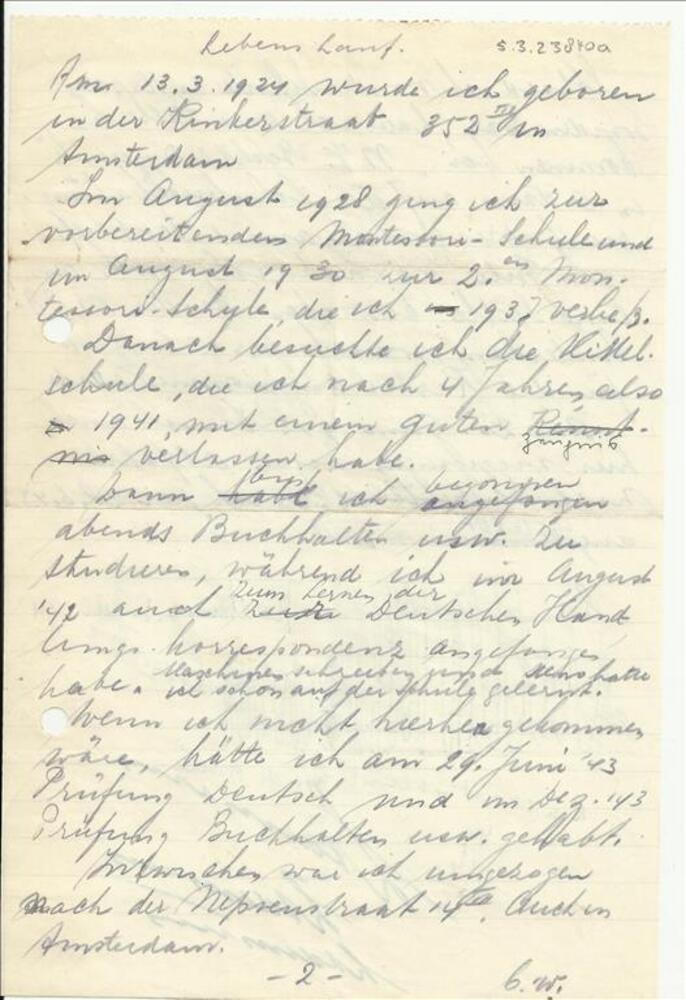 Lebenslauf. 5.3.23840a
Am 13.3.1924 wurde ich geboren
in der Kinkerstraat 352 III in
Amsterdam
Im August 1928 ging ich zur
vorbereitenden Montessori-Schule und
im August 1930 zur 2.en Mon-
tessori-Schule, die ich 1937 verließ.
Danach besuchte ich die
schule, die ich nach 4 Jahren, also
1941, mit einem guten
zeugnis
verlassen habe.
bin begonnen
Dann habe ich angefangen
abends Buchhalten usw. zu
studieren, während ich im August
zum Lernen der
'42 auch Deutschen Hand
lungs-korrespondenz angefangen
Maschinenschreiben und hatte
habe. ich schon auf der Schule gelernt.
Wenn ich nicht hierher gekommen
wäre, hätte ich am 29. Juni '43
Prüfung Deutsch und im Dez. '43
Prüfung Buchhalten usw. gehabt.
Inzwischen war ich umgezogen
nach der 14 Auch in
Amsterdam.
- 2 - b.w.